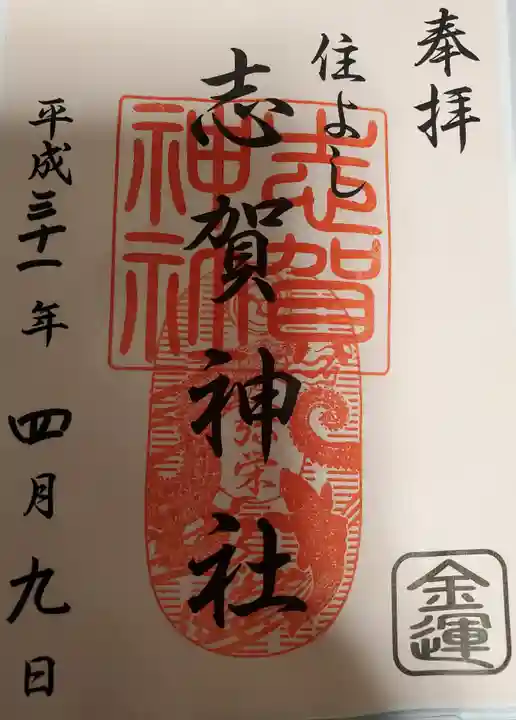 奉拝
住よし
志賀神社
志賀
神社
弥栄
平成三十一年四月九日
金運